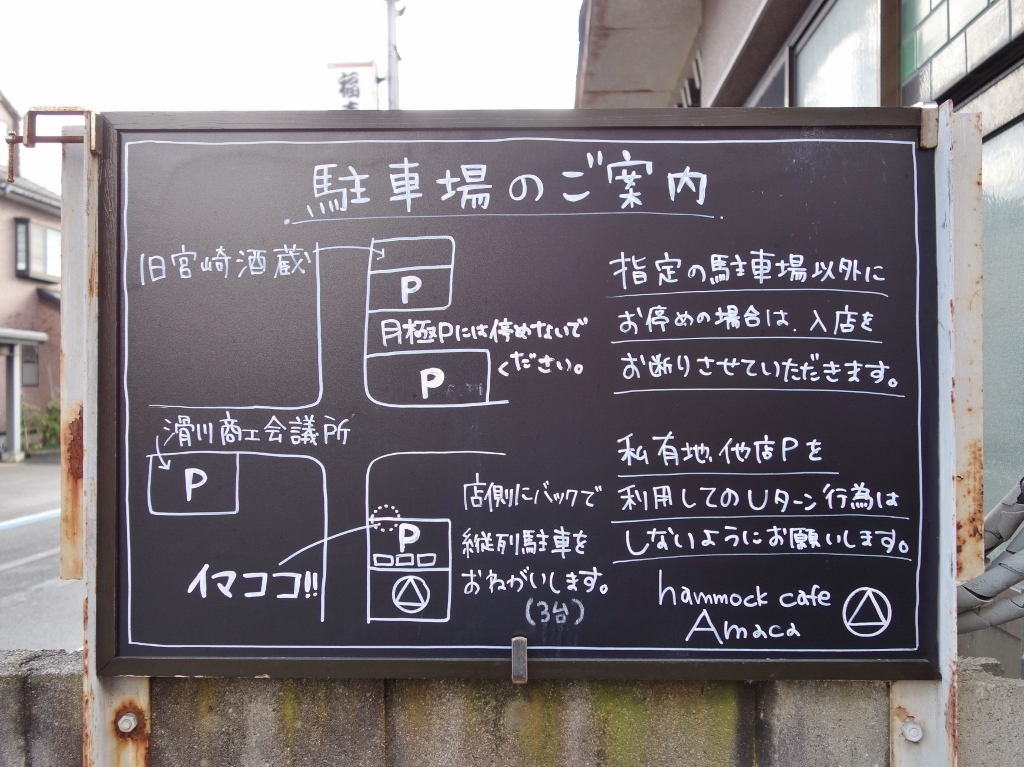 福
駐車場のご案内
旧宮崎酒蔵
P
月極Pには停めないで
ください。
P
滑川商工会議所
P
店側にバックで
P
縦列駐車を
おねがいします。
(3台)
イマココ!!
指定の駐車場以外に
お停めの場合は、入店を
お断りさせていただきます。
私有地、他店Pを
利用してのUターン行為は
しないようにお願いします。
hammock cafe
Amaca